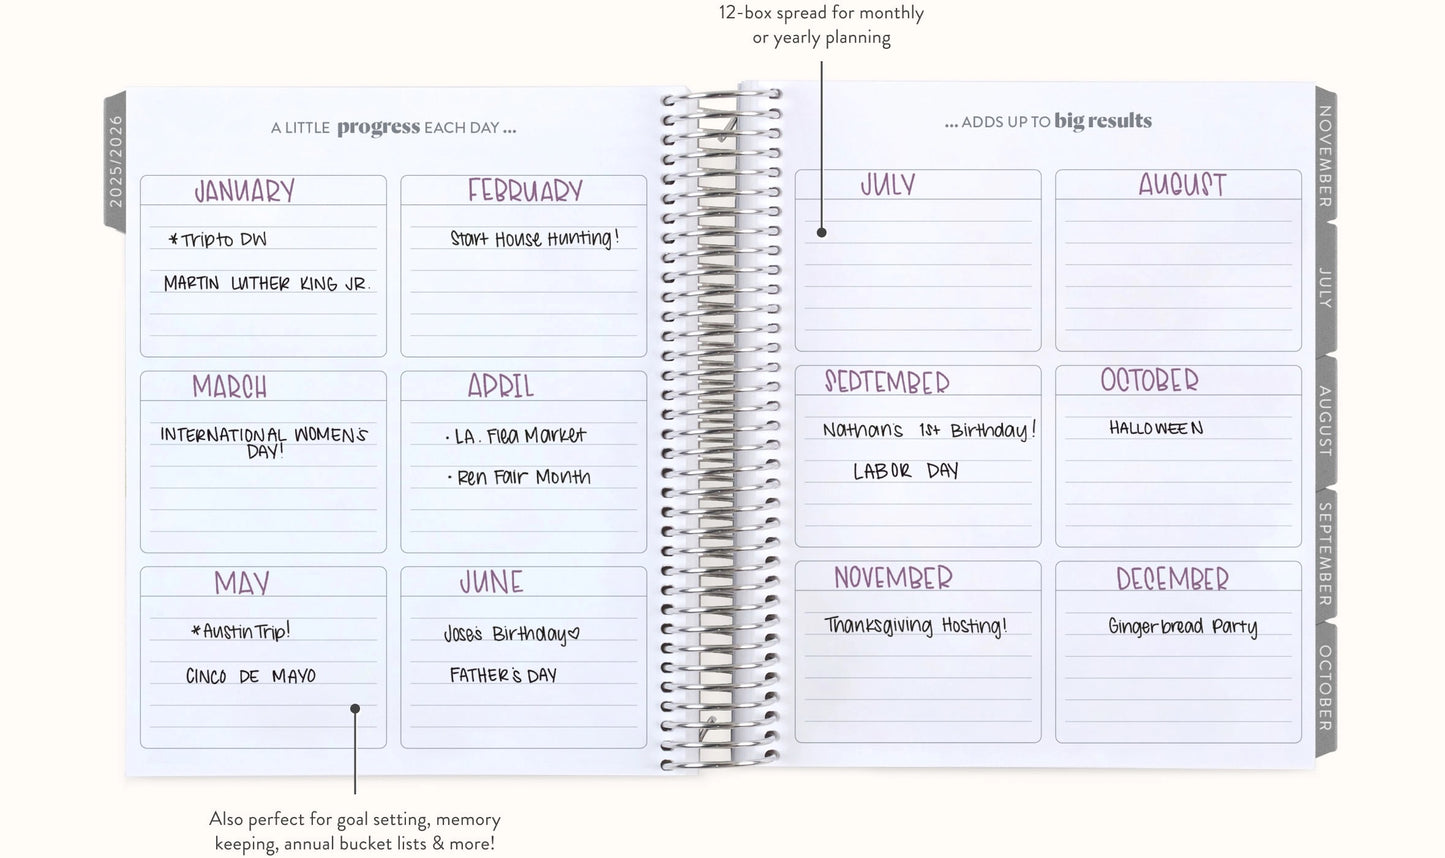 12-box spread for monthly
or yearly planning
2025/2026
A LITTLE progress EACH DAY ...
JANUARY
*Trip to DW
MARTIN LUTHER KING JR.
FEBRUARY
Start House Hunting!
MARCH
INTERNATIONAL WOMEN'S
DAY!
APRIL
· LA. Flea Market
· Ren Fair Month
MAY
*Austin Trip!
CINCO DE MAYO
JUNE
Jose's Birthday♡
FATHER'S DAY
... ADDS UP TO big results
JULY
AUGUST
SEPTEMBER
Nathan's 1st Birthday!
LABOR DAY
OCTOBER
HALLOWEEN
NOVEMBER
Thanksgiving Hosting!
DECEMBER
Gingerbread Party
NOVEMBER
JULY
AUGUST
SEPTEMBER
OCTOBER
Also perfect for goal setting, memory
keeping, annual bucket lists & more!